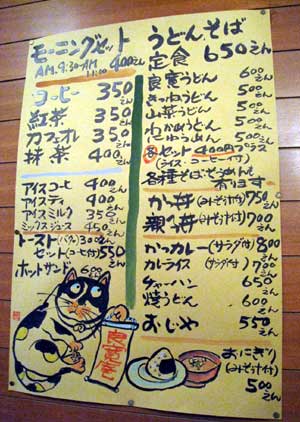 モーニングセット
AM.9:30-AM11:00 400えん
コーヒー 350えん
紅茶 350
カフェオレ 350えん
抹茶 400えん
アイスコーヒ 400えん
アイスティ 400えん
アイスミルク 350えん
ミックスジュース 450えん
トースト(バタ) 300えん
セット(コーヒ付) 550えん
ホットサンド 600
うどん.そば
定食 650えん
良寛うどん 600えん
きつねうどん
山菜うどん
わかめうどん
各セット 400円プラス
(ライス.コーヒー付)
各種そばそうめんも
有ります
かつ丼(みそ汁付) 750えん
親子丼(みそ汁付) 700えん
かつカレー(サラダ付) 800えん
カレーライス (サラダ付) 700えん
チャーハン 650えん
焼うどん 600えん
おじや 550えん
おにぎり
(みそ汁付)
500えん